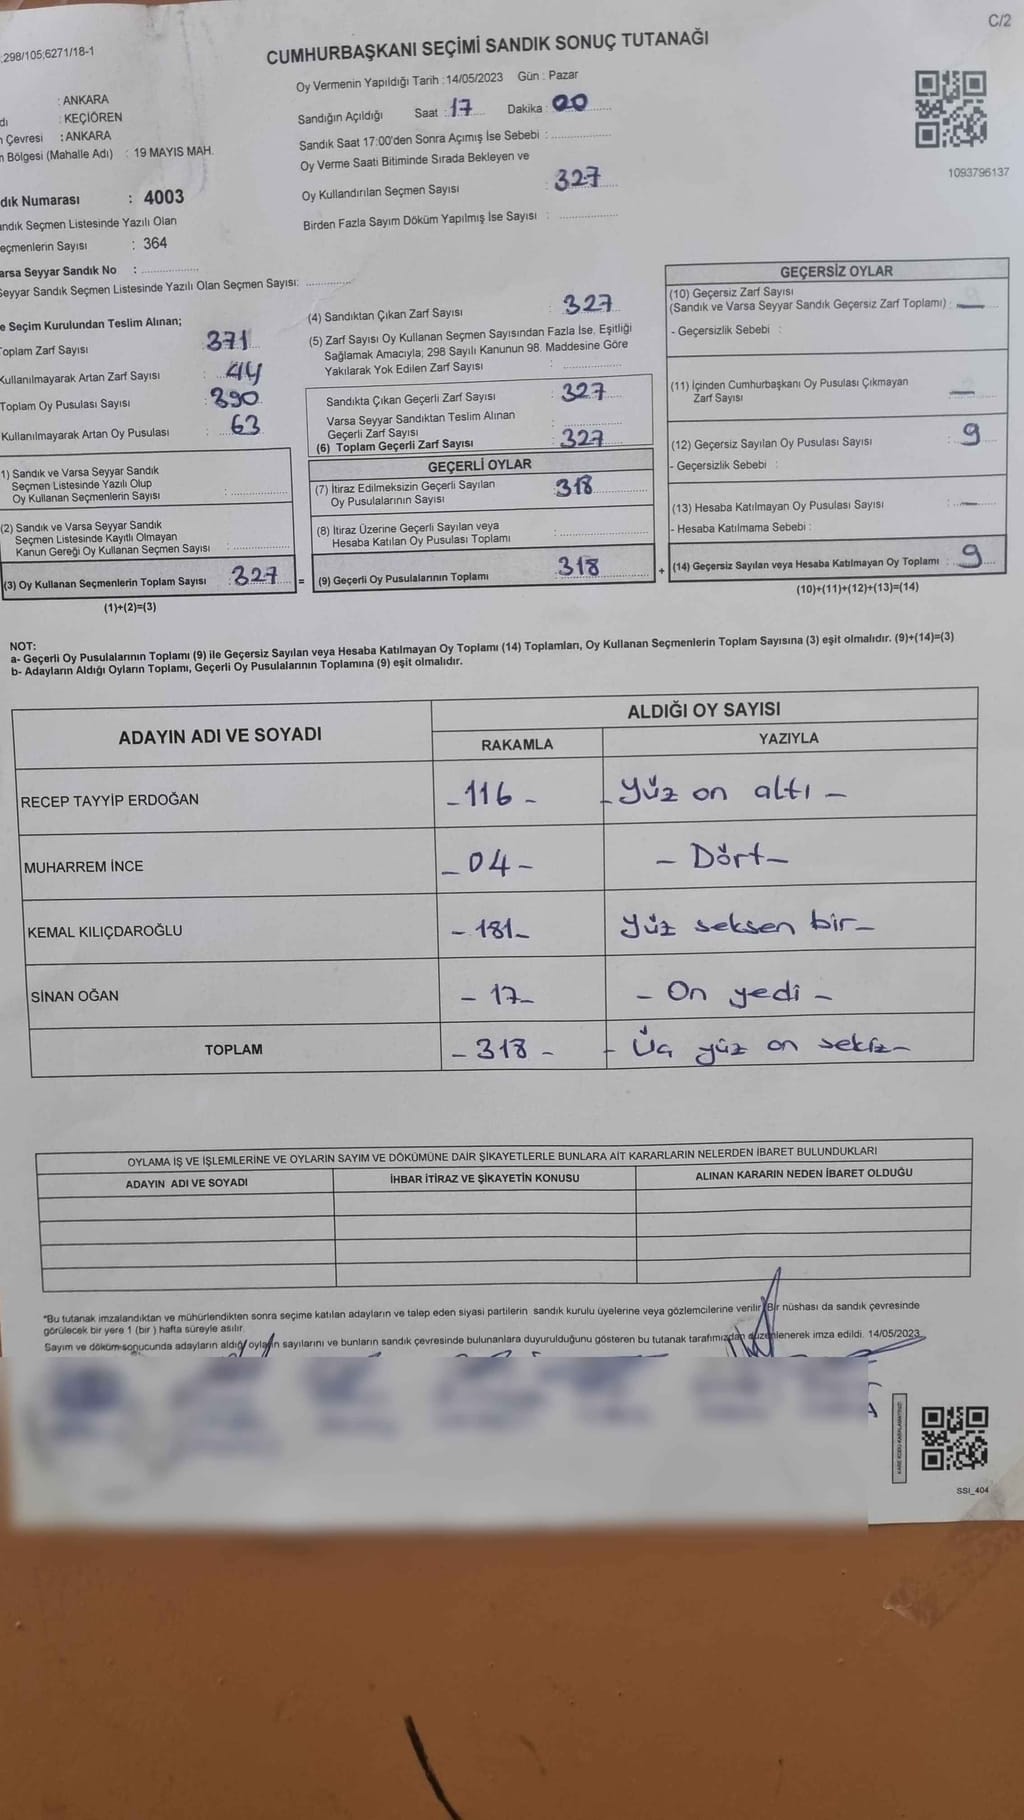 C/2
298/105;6271/18-1
CUMHURBAŞKANI SEÇİMİ SANDIK SONUÇ TUTANAĞI
Oy Vermenin Yapıldığı Tarih : 14/05/2023 Gün : Pazar
: ANKARA
: KEÇİÖREN
Çevresi : ANKARA
Bölgesi (Mahalle Adı) : 19 MAYIS MAH.
Sandığın Açıldığı Saat : 17 Dakika : 00
Sandık Saat 17:00'den Sonra Açımış İse Sebebi :
Oy Verme Saati Bitiminde Sırada Bekleyen ve
Oy Kullandırılan Seçmen Sayısı : 327
Birden Fazla Sayım Döküm Yapılmış İse Sayısı :
1093796137
dık Numarası : 4003
andık Seçmen Listesinde Yazılı Olan
eçmenlerin Sayısı : 364
arsa Seyyar Sandık No :
Seyyar Sandık Seçmen Listesinde Yazılı Olan Seçmen Sayısı:
e Seçim Kurulundan Teslim Alınan;
Toplam Zarf Sayısı : 371
Kullanılmayarak Artan Zarf Sayısı : 44
Toplam Oy Pusulası Sayısı : 390
Kullanılmayarak Artan Oy Pusulası : 63
1) Sandık ve Varsa Seyyar Sandık
Seçmen Listesinde Yazılı Olup
Oy Kullanan Seçmenlerin Sayısı :
(2) Sandık ve Varsa Seyyar Sandık
Seçmen Listesinde Kayıtlı Olmayan
Kanun Gereği Oy Kullanan Seçmen Sayısı :
(3) Oy Kullanan Seçmenlerin Toplam Sayısı : 327
(1)+(2)=(3)
=
(4) Sandıktan Çıkan Zarf Sayısı : 327
(5) Zarf Sayısı Oy Kullanan Seçmen Sayısından Fazla İse, Eşitliği
Sağlamak Amacıyla; 298 Sayılı Kanunun 98. Maddesine Göre
Yakılarak Yok Edilen Zarf Sayısı :
Sandıkta Çıkan Geçerli Zarf Sayısı : 327
Varsa Seyyar Sandıktan Teslim Alınan
Geçerli Zarf Sayısı :
(6) Toplam Geçerli Zarf Sayısı : 327
GEÇERLİ OYLAR
(7) İtiraz Edilmeksizin Geçerli Sayılan
Oy Pusulalarının Sayısı : 318
(8) İtiraz Üzerine Geçerli Sayılan veya
Hesaba Katılan Oy Pusulası Toplamı :
(9) Geçerli Oy Pusulalarının Toplamı : 318
+
GEÇERSİZ OYLAR
(10) Geçersiz Zarf Sayısı
(Sandık ve Varsa Seyyar Sandık Geçersiz Zarf Toplamı) : —
- Geçersizlik Sebebi :
(11) İçinden Cumhurbaşkanı Oy Pusulası Çıkmayan
Zarf Sayısı : —
(12) Geçersiz Sayılan Oy Pusulası Sayısı : 9
- Geçersizlik Sebebi :
(13) Hesaba Katılmayan Oy Pusulası Sayısı : —
- Hesaba Katılmama Sebebi :
(14) Geçersiz Sayılan veya Hesaba Katılmayan Oy Toplamı : 9
(10)+(11)+(12)+(13)=(14)
NOT:
a- Geçerli Oy Pusulalarının Toplamı (9) ile Geçersiz Sayılan veya Hesaba Katılmayan Oy Toplamı (14) Toplamları, Oy Kullanan Seçmenlerin Toplam Sayısına (3) eşit olmalıdır. (9)+(14)=(3)
b- Adayların Aldığı Oyların Toplamı, Geçerli Oy Pusulalarının Toplamına (9) eşit olmalıdır.
ADAYIN ADI VE SOYADI
ALDIĞI OY SAYISI
RAKAMLA YAZIYLA
RECEP TAYYİP ERDOĞAN - 116 - - Yüz on altı -
MUHARREM İNCE - 04 - - Dört -
KEMAL KILIÇDAROĞLU - 181 - Yüz seksen bir -
SİNAN OĞAN - 17 - - On yedi -
TOPLAM - 318 - - Üç yüz on sekiz -
OYLAMA İŞ VE İŞLEMLERİNE VE OYLARIN SAYIM VE DÖKÜMÜNE DAİR ŞİKAYETLERLE BUNLARA AİT KARARLARIN NELERDEN İBARET BULUNDUKLARI
ADAYIN ADI VE SOYADI İHBAR İTİRAZ VE ŞİKAYETİN KONUSU ALINAN KARARIN NEDEN İBARET OLDUĞU
*Bu tutanak imzalandıktan ve mühürlendikten sonra seçime katılan adayların ve talep eden siyasi partilerin sandık kurulu üyelerine veya gözlemcilerine verilir. Bir nüshası da sandık çevresinde
görülecek bir yere 1 (bir ) hafta süreyle asılır.
Sayım ve döküm sonucunda adayların aldığı oyların sayılarını ve bunların sandık çevresinde bulunanlara duyurulduğunu gösteren bu tutanak tarafımızdan düzenlenerek imza edildi. 14/05/2023
SSI_404